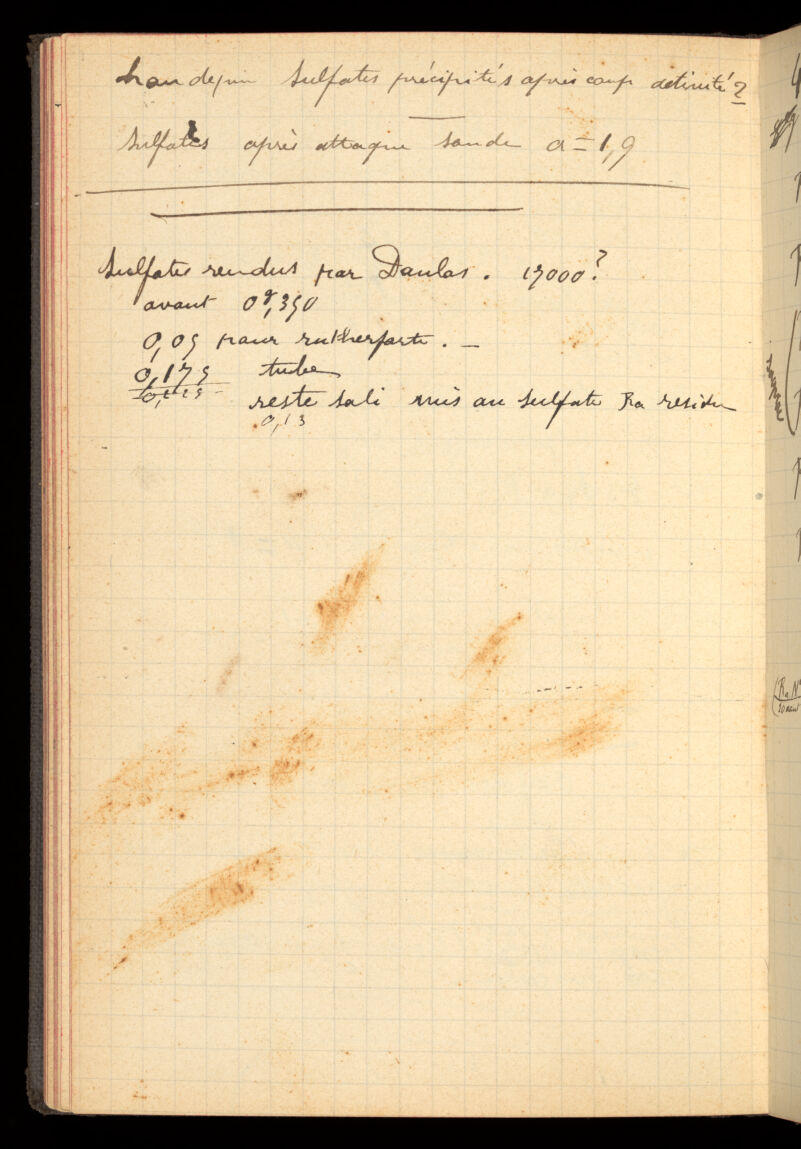 Sulfates précipités après coup activité?
Sulfates après attaque soude a = 1,9
Sulfate rendus par Danlos. 17000?
avant 0g,350
0,05 pour rutherforte. —
0,175 tube
reste sali mis au sulfate Ra residu
0,13